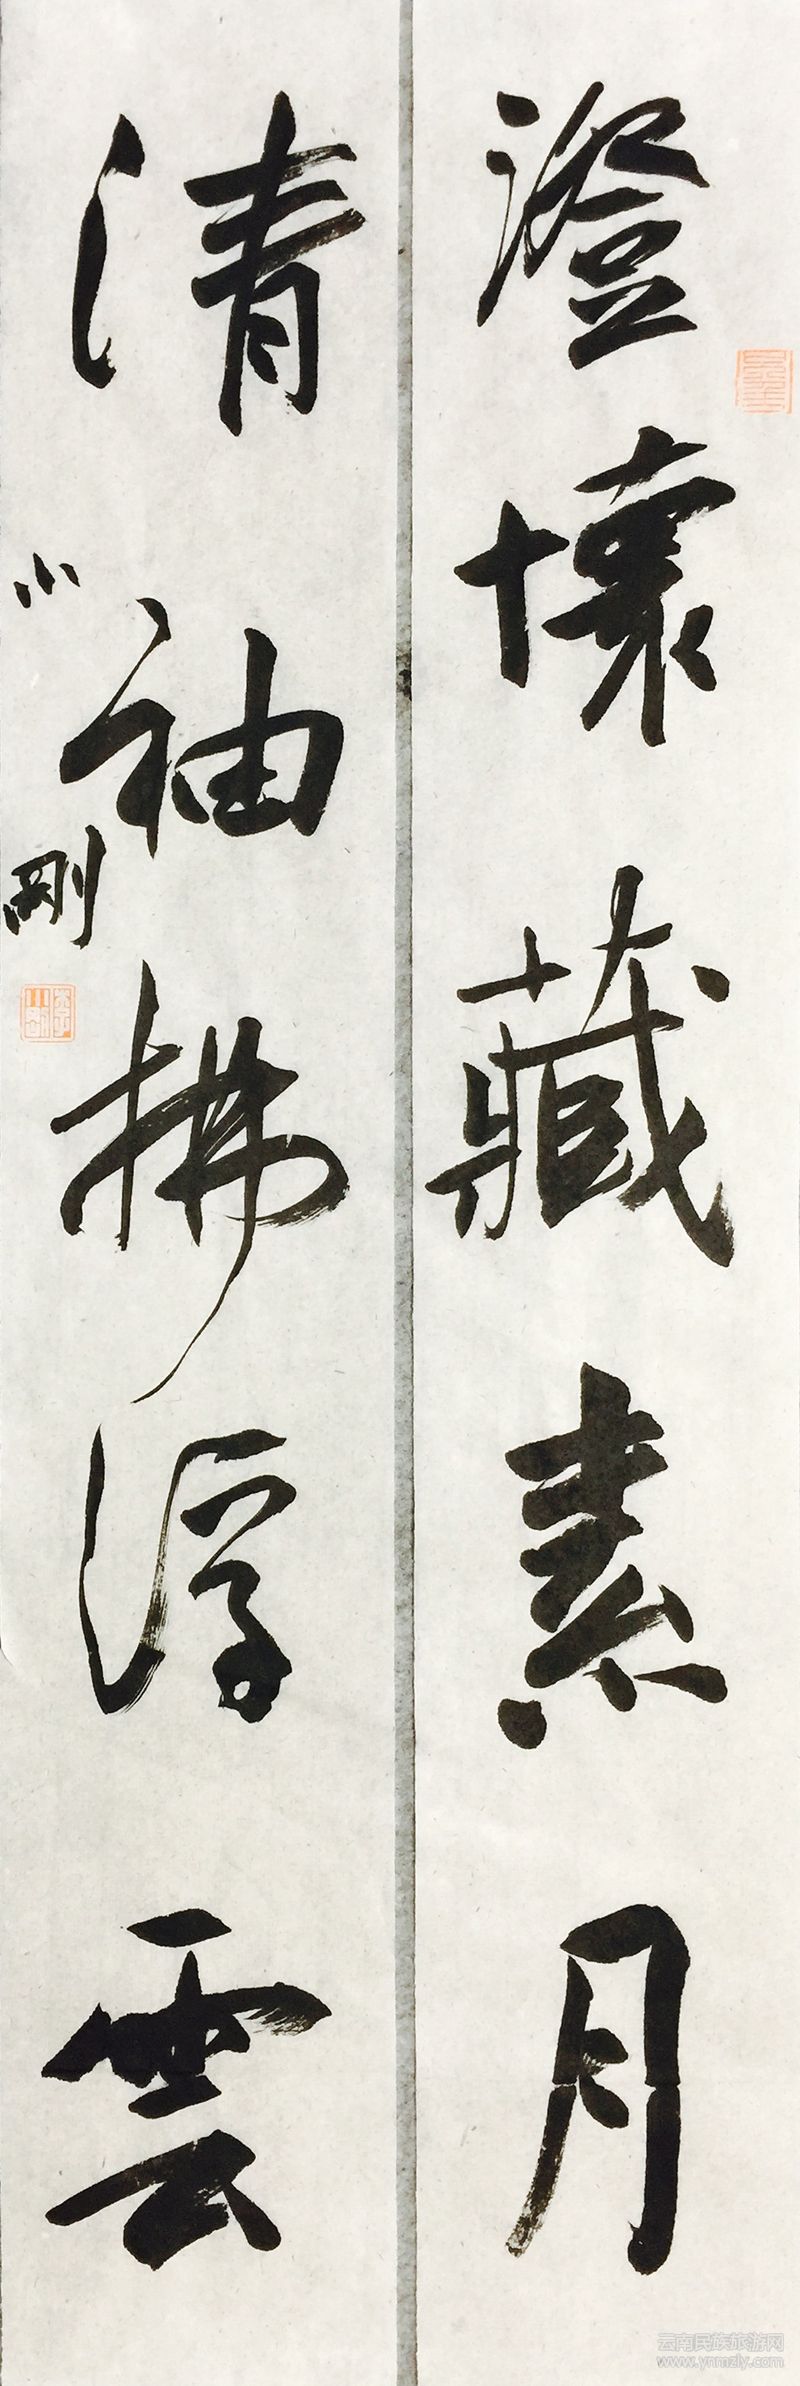 澄懷藏素月
清袖拂浮雲
小剛
云南民族旅游网
www.ynmzly.com